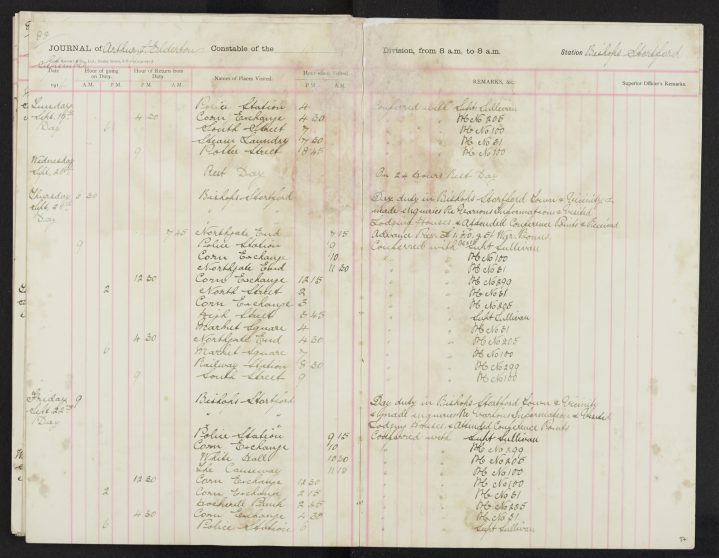 JOURNAL of Arthur J. Elderton Constable of the Division, from 8 a.m. to 8 a.m. Station Bishops Stortford
September
Date Hour of going on Duty. Hour of Return from Duty. Names of Places Visited. Hour when visited. REMARKS, &c. Superior Officer's Remarks.
191 A.M. P.M. P.M. A.M. P.M. A.M.
Tuesday Police Station 4 Conferred with Supt Sullivan
Sept 4 30 Corn Exchange 4 30 " " PC No 205
Day 6 South Street 7 " " PC No 100
Steam Laundry 7 30 " " PC No 51
9 Potter Street 8 45 " " PC No 100
Wednesday Rest Day On 24 Hours Rest Day
Sept. 20th
Thursday 6 30 Bishops Stortford Day duty in Bishops Stortford Town & Vicinity &
Sept 21st " made enquiries Re Various Informations & Visited
Day " Lodging Houses & Attended Conference Points & Received
7 45 Northgate End 7 15 Advance
9 Police Station 9 Conferred with Supt Sullivan
Corn Exchange 10 " " PC No 100
Northgate End 11 30 " " PC No 51
12 30 Corn Exchange 12 15 " " PC No 299
2 North Street 2 " " PC No 51
Corn Exchange 3 " " PC No 205
High Street 3 45 " " Supt Sullivan
Market Square 4 " " PC No 51
4 30 Northgate End 4 30 " " PC No 205
6 Market Square 7 " " PC No 100
Railway Station 8 30 " " PC No 299
9 South Street 9 " " PC No 100
Friday 9 Bishops Stortford Day duty in Bishops Stortford Town & Vicinity
Sept 22nd " " & made enquiries Re Various Information & Visited
Day " Lodging Houses & Attended Conference Points
Police Station 9 15 Conferred with Supt Sullivan
Corn Exchange 10 " " PC No 299
White Hall 10 20 " " PC No 205
The Causeway 11 10 " " PC No 100
12 30 Corn Exchange 12 30 " " PC No 100
2 Corn Exchange 2 15 " " PC No 51
2 45 " " PC No 205
4 30 Corn Exchange 4 30 " " PC No 51
6 Police Station 6 " " Supt Sullivan